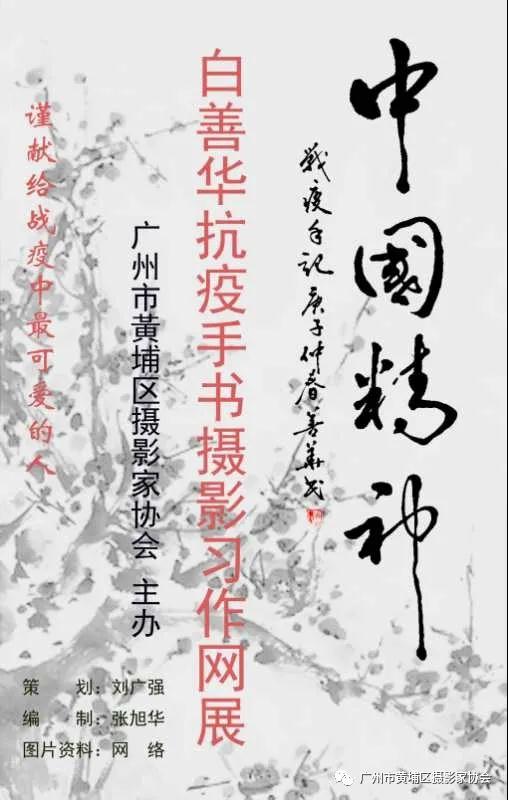 中國精神
戰疫手記 庚子仲春 善華书
白善华抗疫手书摄影习作网展
广州市黄埔区摄影家协会 主办
谨献给战疫中最可爱的人
策 划：刘广强
编 制：张旭华
图片资料：网 络
广州市黄埔区摄影家协会